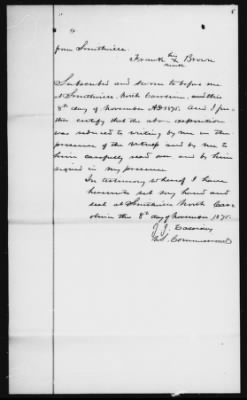 from Smithville.
his
Frank X Brown
mark
Subscribed and sworn to before me
at Smithville, North Carolina, on this
8th day of November AD 1875. And I fur
ther certify that the above deposition
was reduced to writing by me in the
presence of the witness and by me to
him carefully read over and by him
signed in my presence.
In testimony whereof I have
hereunto set my hand and
seal at Smithville North Caro
olina this 8th day of November 1875.
J. J.
Commissioner